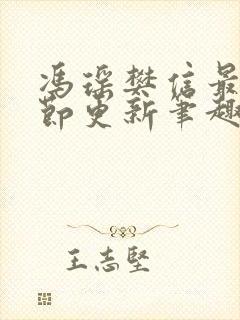 冯瑶樊信最
节更新笔趣
王志坚